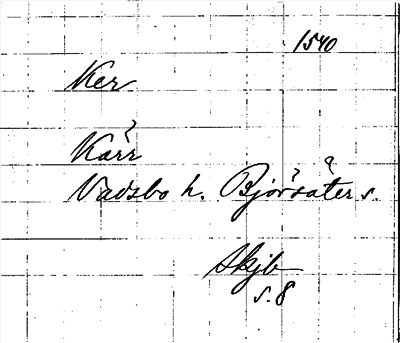 1540
Ker
Kärr
Vadsbo h. Björsäter s.
skjb
s. 8